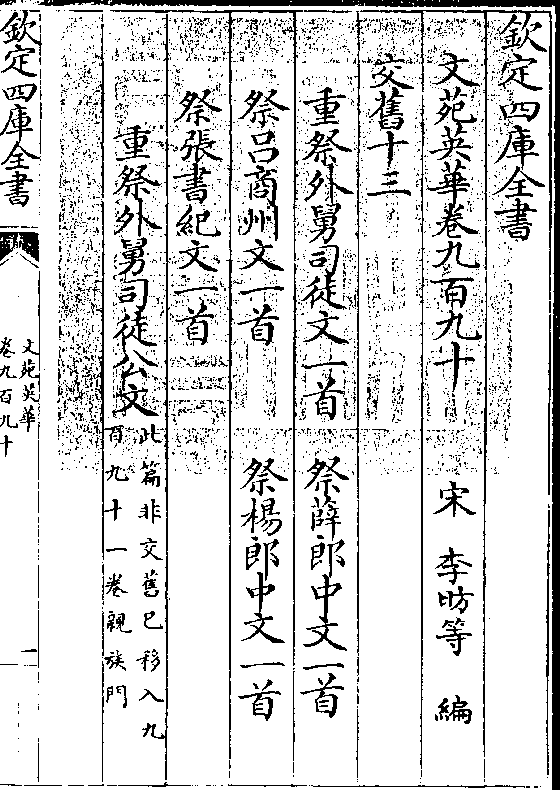 欽定四庫全書
文苑英華卷九百九十
宋 李昉等 編
交舊十三
重祭外舅司徒文一首 祭薛郎中文一首
祭呂商州文一首 祭楊郎中文一首
祭張書紀文一首
重祭外舅司徒公文 此篇非交舊已移入九
百九十一卷親族門
欽定四庫全書
文苑英華
卷九百九十
一